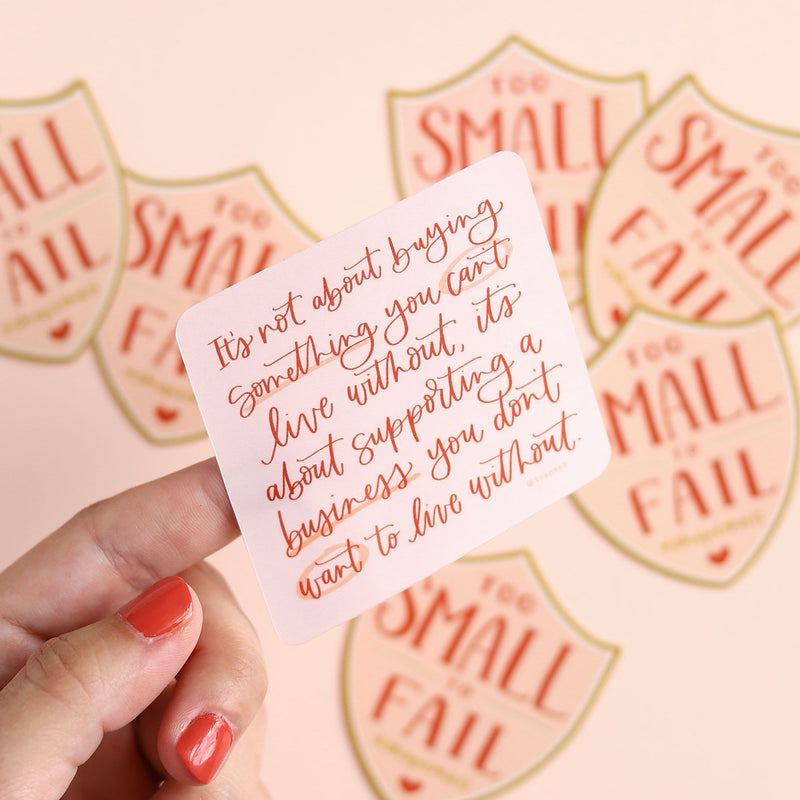 It's not about buying
something you can't
live without, it's
about supporting a
business you don't
want to live without.
TOO
SMALL
TO
FAIL
TOO
SMALL
TO
FAIL
TOO
SMALL
TO
FAIL
TOO
SMALL
TO
FAIL